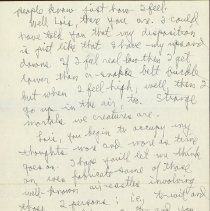 people know just how I feel.
Well Lois, there you are. I could
have told you that my disposition
is just like that I have my ups and
downs. If I feel real low then I get
lower than a snakes belt buckle
but when I feel high, well, then I
go up in the air, too. Strange
mortals we creatures are.
Lois, you begin to occupy my
thoughts more and more as time
goes on. I hope you'll let me think
some of those
well-known air castles involving
these 2 persons; i.e., to wit and